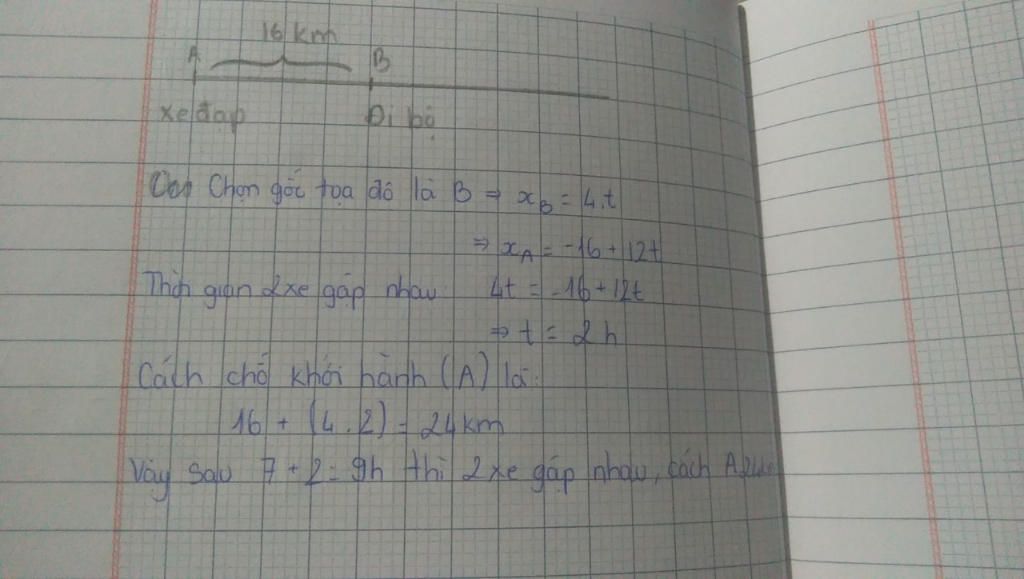 16 km
A B
xe đạp Đi bộ
Chọn gốc tọa độ là B ⇒ x_B = 4.t
⇒ x_A = -16 + 12t
Thời gian 2 xe gặp nhau 4t = -16 + 12t
⇒ t = 2 h
Cách chỗ khởi hành (A) là:
16 + (4.2) = 24 km
Vậy sau 7 + 2 = 9h thì 2 xe gặp nhau, cách A